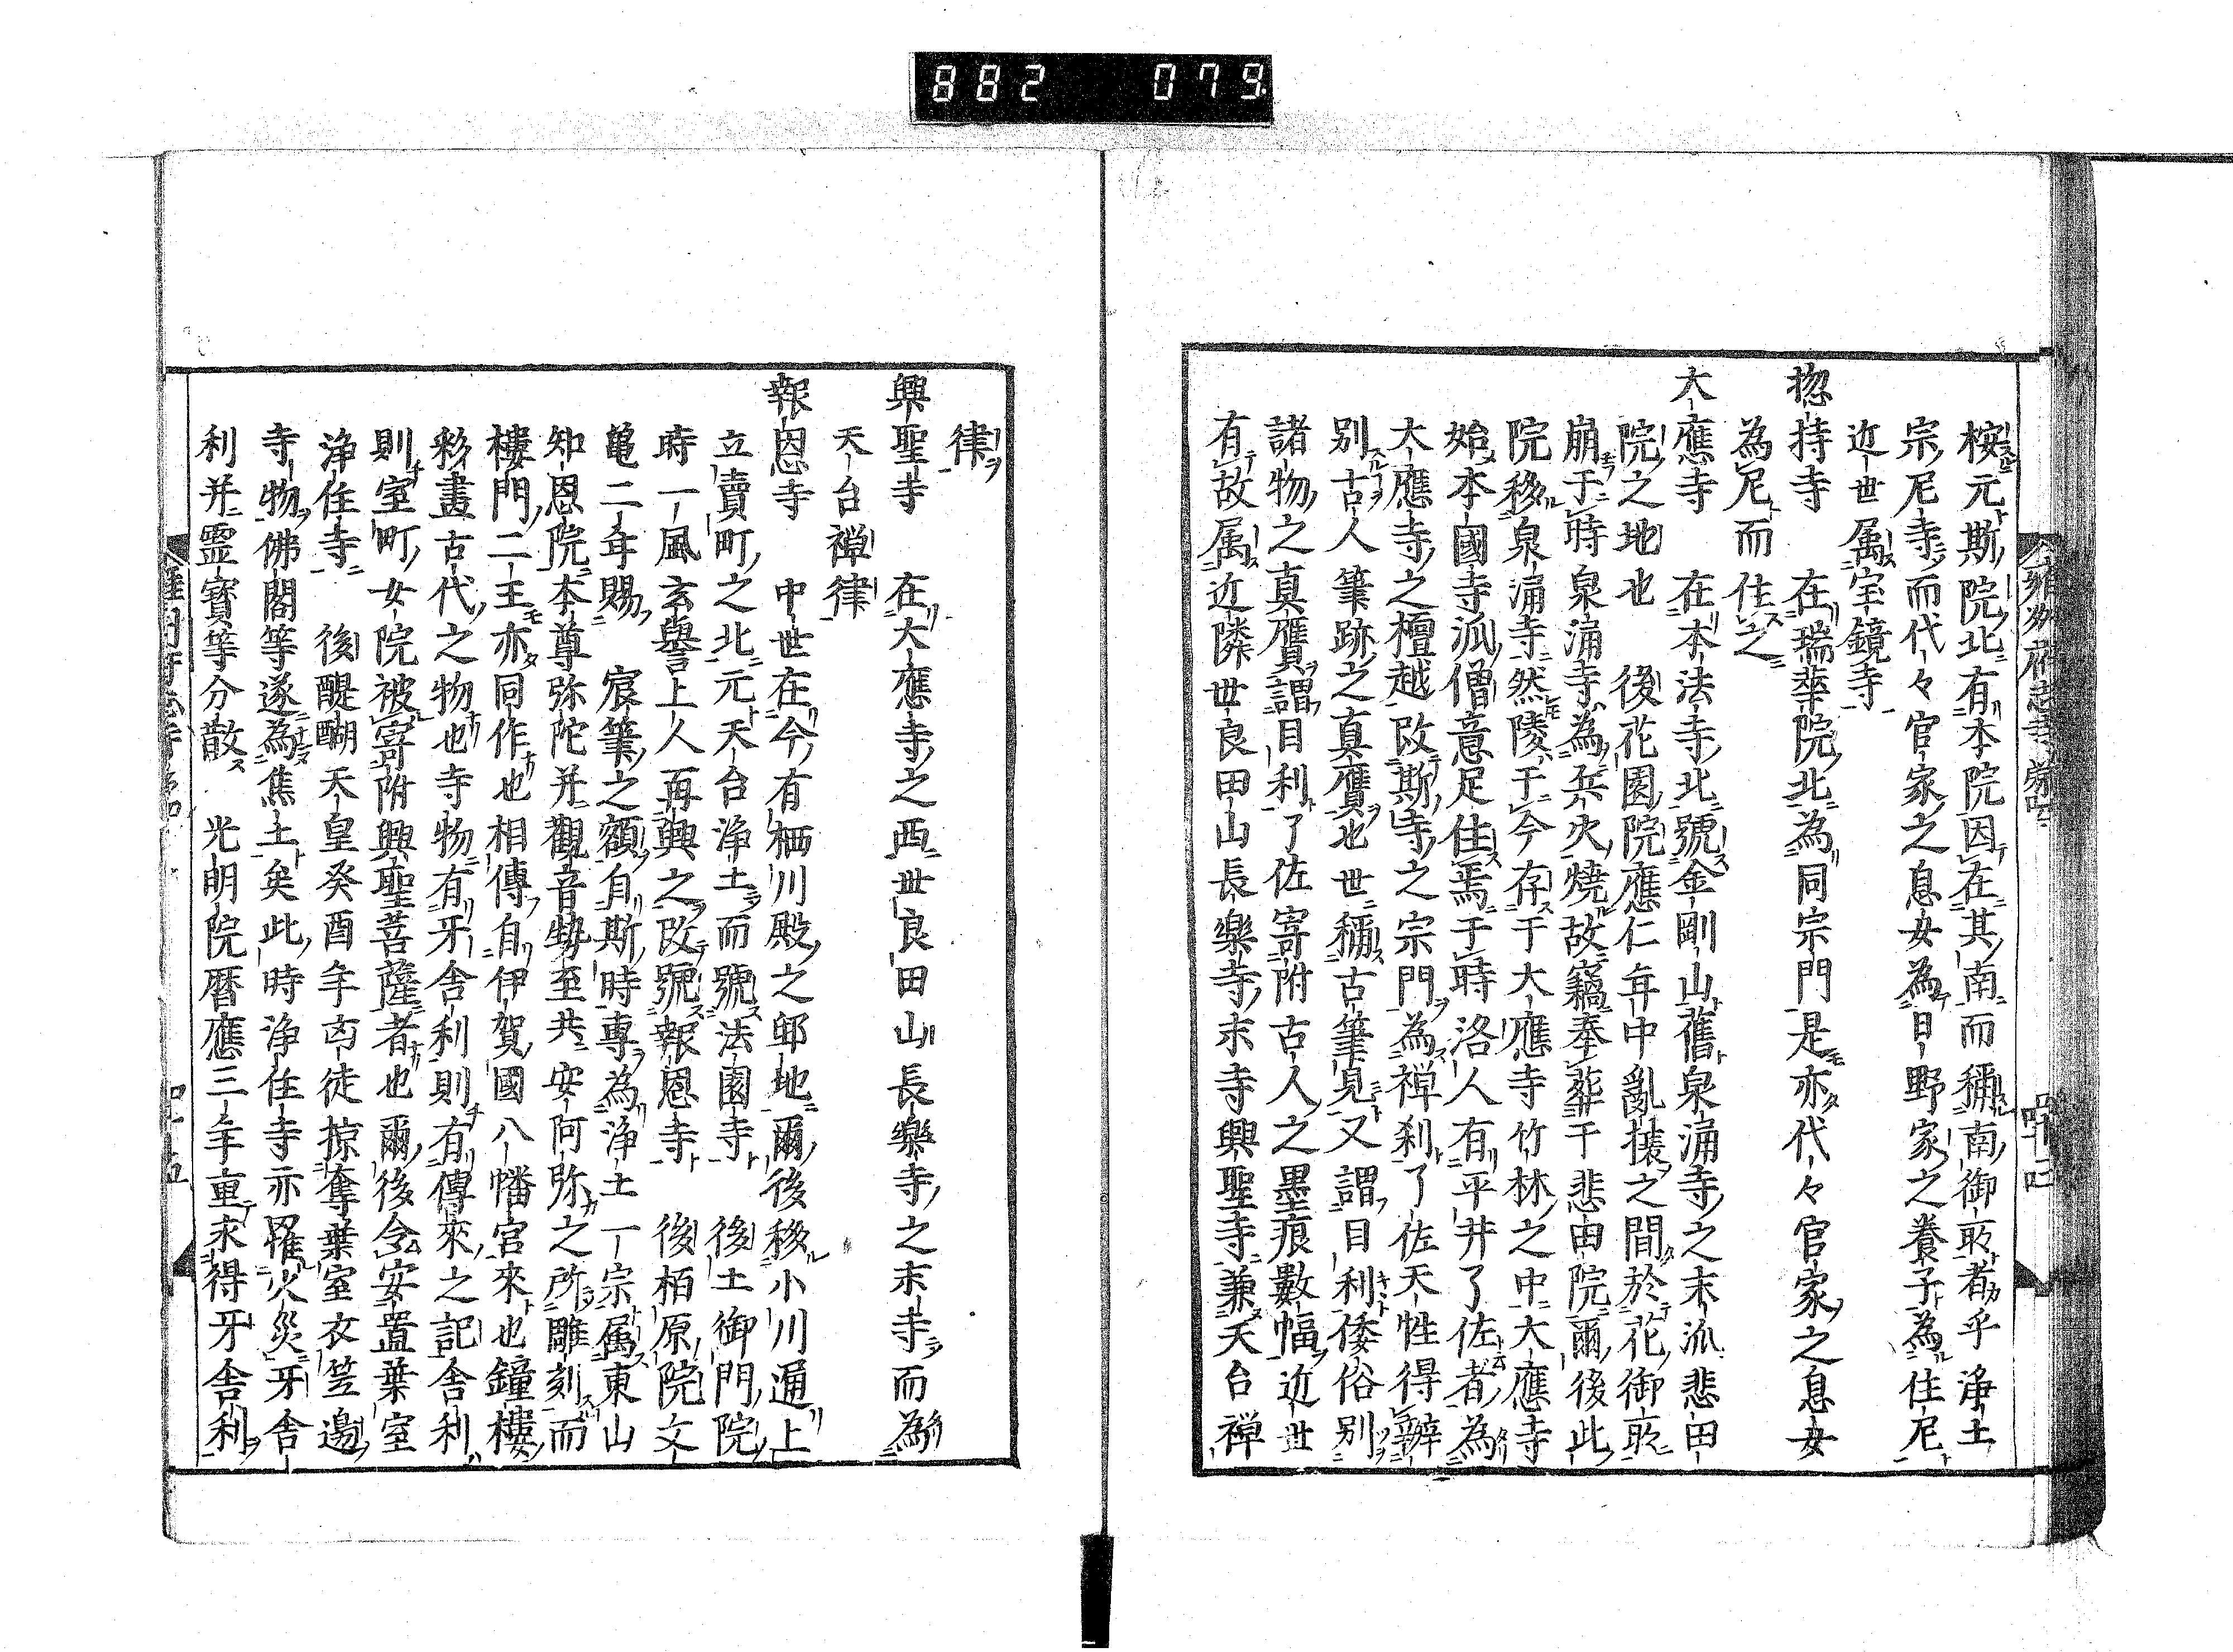 882 079
桉元斯院北有本院因在其南而稱南御所者乎淨土
宗尼寺而代々官家之息女為日野家之養子為住尼
近世属宝鏡寺
惣持寺 在瑞華院北為同宗門是亦代々官家之息女
為尼而住之
大應寺 在本法寺北號金剛山舊泉涌寺之末派悲田
院之地也 後花園院應仁年中亂攘之間於花御所
崩于時泉涌寺為兵火燒故竊奉葬于悲田院爾後此
院移泉涌寺然陵于今存于大應寺竹林之中大應寺
始本國寺派僧意足住焉于時洛人有平井了佐者為
大應寺之檀越改斯寺之宗門為禅刹了佐天性得辨
別古人筆跡之真贋也世稱古筆見又謂目利倭俗別
諸物之真贋謂目利了佐寄附古人之墨痕數幅近世
有故属近隣世良田山長樂寺末寺興聖寺兼天台禅
律
興聖寺 在大應寺之西世良田山長樂寺之末寺而為
天台禅律
報恩寺 中世在今有栖川殿之邸地爾後移小川通上
立賣町之北元天台浄土而號法園寺 後土御門院
時一風玄譽上人再興之改號報恩寺 後栢原院文
亀二年賜 宸筆之額自斯時專為浄土一宗属東山
知恩院本尊弥陀并觀音勢至共安阿弥之所雕刻而
樓門二王亦同作也相傳自伊賀國八幡宮來也鐘樓
彩畫古代之物也寺物有牙舎利則有傳來之記舎利
則室町女院被寄附興聖菩薩者也爾後令安置葉室
浄住寺 後醍醐天皇癸酉年凶徒掠奪葉室衣笠邊
寺物佛閣等遂為焦土矣此時浄住寺亦罹火災牙舎
利并靈寶等分散 光明院暦應三年重求得牙舎利